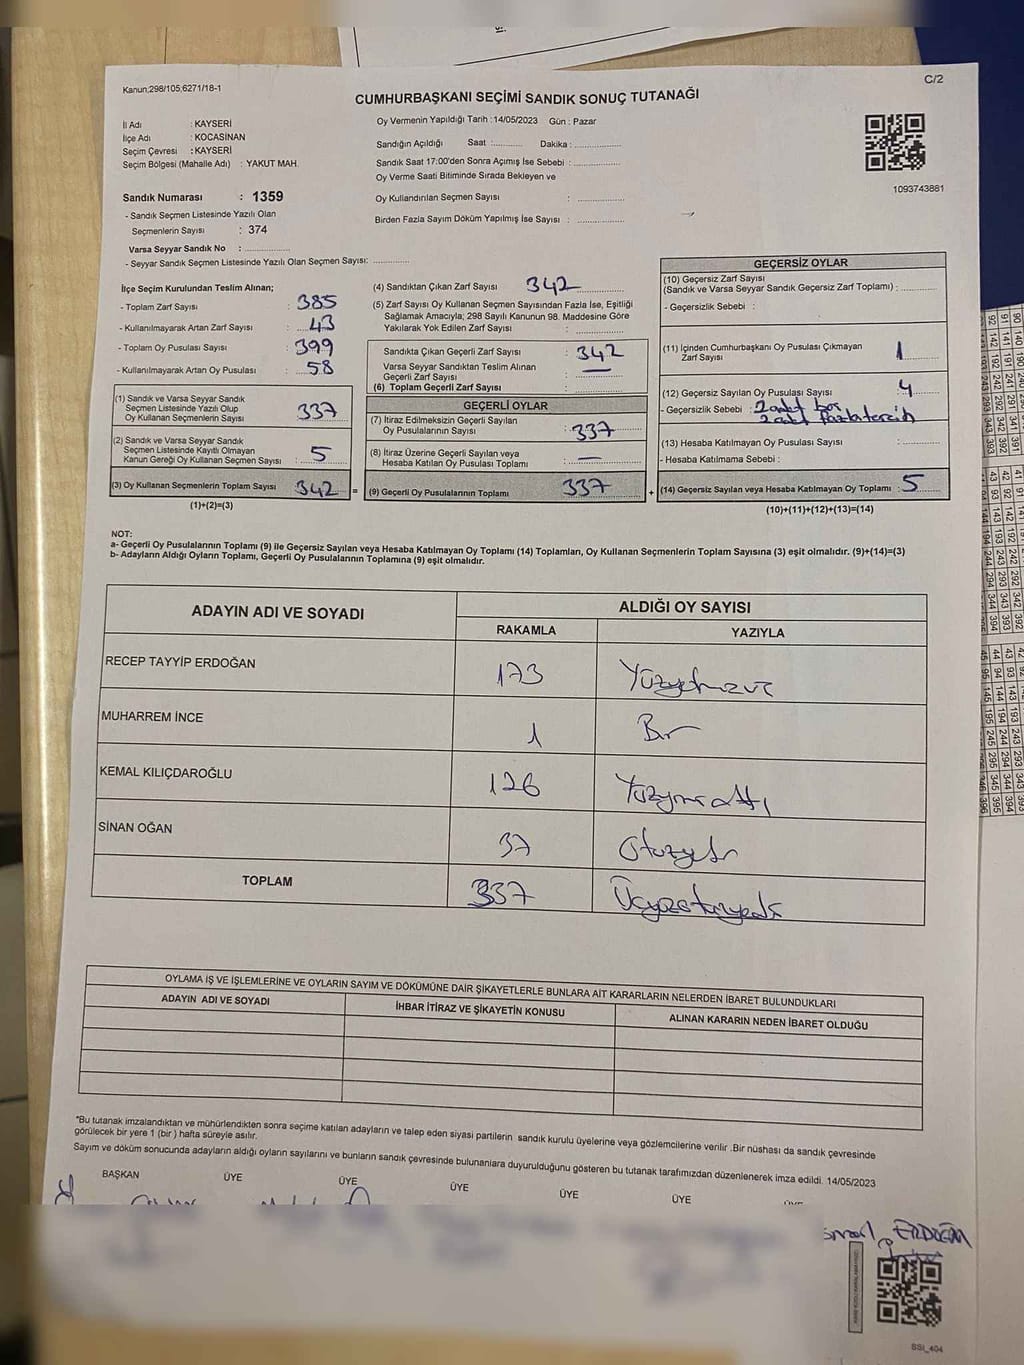 Kanun;298/105;6271/18-1
C/2
CUMHURBAŞKANI SEÇİMİ SANDIK SONUÇ TUTANAĞI
İl Adı : KAYSERİ
İlçe Adı : KOCASİNAN
Seçim Çevresi : KAYSERİ
Seçim Bölgesi (Mahalle Adı) : YAKUT MAH.
Sandık Numarası : 1359
- Sandık Seçmen Listesinde Yazılı Olan
Seçmenlerin Sayısı : 374
Varsa Seyyar Sandık No : ..............
- Seyyar Sandık Seçmen Listesinde Yazılı Olan Seçmen Sayısı: ............
Oy Vermenin Yapıldığı Tarih :14/05/2023 Gün : Pazar
Sandığın Açıldığı Saat :.......... Dakika :..............
Sandık Saat 17:00'den Sonra Açımış İse Sebebi : ..............
Oy Verme Saati Bitiminde Sırada Bekleyen ve
Oy Kullandırılan Seçmen Sayısı : ..............
Birden Fazla Sayım Döküm Yapılmış İse Sayısı : ..............
1093743881
İlçe Seçim Kurulundan Teslim Alınan;
- Toplam Zarf Sayısı : 385
- Kullanılmayarak Artan Zarf Sayısı : 43
- Toplam Oy Pusulası Sayısı : 399
- Kullanılmayarak Artan Oy Pusulası : 58
(1) Sandık ve Varsa Seyyar Sandık
Seçmen Listesinde Yazılı Olup
Oy Kullanan Seçmenlerin Sayısı : 337
(2) Sandık ve Varsa Seyyar Sandık
Seçmen Listesinde Kayıtlı Olmayan
Kanun Gereği Oy Kullanan Seçmen Sayısı : 5
(3) Oy Kullanan Seçmenlerin Toplam Sayısı 342 =
(1)+(2)=(3)
(4) Sandıktan Çıkan Zarf Sayısı : 342
(5) Zarf Sayısı Oy Kullanan Seçmen Sayısından Fazla İse, Eşitliği
Sağlamak Amacıyla; 298 Sayılı Kanunun 98. Maddesine Göre
Yakılarak Yok Edilen Zarf Sayısı : ..............
Sandıkta Çıkan Geçerli Zarf Sayısı : 342
Varsa Seyyar Sandıktan Teslim Alınan
Geçerli Zarf Sayısı : —
(6) Toplam Geçerli Zarf Sayısı :
GEÇERLİ OYLAR
(7) İtiraz Edilmeksizin Geçerli Sayılan
Oy Pusulalarının Sayısı : 337
(8) İtiraz Üzerine Geçerli Sayılan veya
Hesaba Katılan Oy Pusulası Toplamı : —
(9) Geçerli Oy Pusulalarının Toplamı 337 +
GEÇERSİZ OYLAR
(10) Geçersiz Zarf Sayısı
(Sandık ve Varsa Seyyar Sandık Geçersiz Zarf Toplamı) : ............
- Geçersizlik Sebebi :
(11) İçinden Cumhurbaşkanı Oy Pusulası Çıkmayan
Zarf Sayısı : 1
(12) Geçersiz Sayılan Oy Pusulası Sayısı : 4
- Geçersizlik Sebebi : 2 adet boş
2 adet fazla tercih
(13) Hesaba Katılmayan Oy Pusulası Sayısı : ..............
- Hesaba Katılmama Sebebi :
(14) Geçersiz Sayılan veya Hesaba Katılmayan Oy Toplamı : 5
(10)+(11)+(12)+(13)=(14)
NOT:
a- Geçerli Oy Pusulalarının Toplamı (9) ile Geçersiz Sayılan veya Hesaba Katılmayan Oy Toplamı (14) Toplamları, Oy Kullanan Seçmenlerin Toplam Sayısına (3) eşit olmalıdır. (9)+(14)=(3)
b- Adayların Aldığı Oyların Toplamı, Geçerli Oy Pusulalarının Toplamına (9) eşit olmalıdır.
ADAYIN ADI VE SOYADI ALDIĞI OY SAYISI
RAKAMLA YAZIYLA
RECEP TAYYİP ERDOĞAN 173 Yüzyetmişüç
MUHARREM İNCE 1 Bir
KEMAL KILIÇDAROĞLU 126 Yüzyirmialtı
SİNAN OĞAN 37 Otuzyedi
TOPLAM 337 Üçyüzotuzyedi
OYLAMA İŞ VE İŞLEMLERİNE VE OYLARIN SAYIM VE DÖKÜMÜNE DAİR ŞİKAYETLERLE BUNLARA AİT KARARLARIN NELERDEN İBARET BULUNDUKLARI
ADAYIN ADI VE SOYADI İHBAR İTİRAZ VE ŞİKAYETİN KONUSU ALINAN KARARIN NEDEN İBARET OLDUĞU
*Bu tutanak imzalandıktan ve mühürlendikten sonra seçime katılan adayların ve talep eden siyasi partilerin sandık kurulu üyelerine veya gözlemcilerine verilir .Bir nüshası da sandık çevresinde
görülecek bir yere 1 (bir ) hafta süreyle asılır.
Sayım ve döküm sonucunda adayların aldığı oyların sayılarını ve bunların sandık çevresinde bulunanlara duyurulduğunu gösteren bu tutanak tarafımızdan düzenlenerek imza edildi. 14/05/2023
BAŞKAN ÜYE ÜYE ÜYE ÜYE ÜYE ÜYE
ERDOĞAN
SSI_404